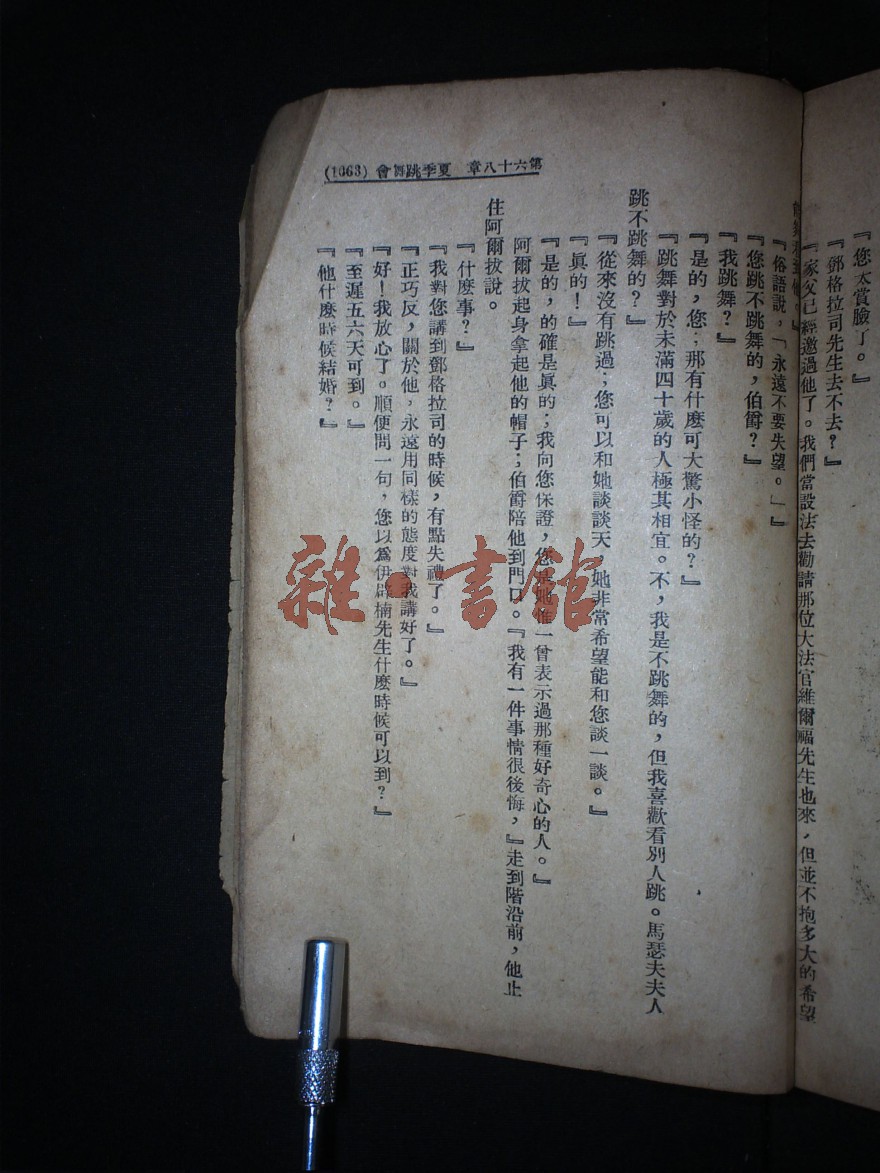 第六十八章　夏季跳舞會（1063）
『您太賞臉了。』
『鄧格拉司先生去不去？』
『家父已經邀過他了。我們當設法去勸請那位大法官維爾福先生也來，但並不抱多大的希望
『俗語說，「永遠不要失望。」』
『您跳不跳舞的，伯爵？』
『我跳舞？』
『是的，您；那有什麼可大驚小怪的？』
『跳舞對於未滿四十歲的人極其相宜。不，我是不跳舞的，但我喜歡看別人跳。馬瑟夫夫人
跳不跳舞的？』
『從來沒有跳過；您可以和她談談天　她非常希望能和您談一談。』
『眞的！』
『是的，的確是眞的；我向您保證，您是她惟一曾表示過那種好奇心的人。』
阿爾拔起身拿起他的帽子；伯爵陪他到門口。『我有一件事情很後悔，』走到階沿前，他止
住阿爾拔說。
『什麼事？』
『我對您講到鄧格拉司的時候，有點失禮了。』
『正巧反，關於他，永遠用同樣的態度對我講好了。』
『好！我放心了。順便問一句，您以爲伊辟楠先生什麼時候可以到？』
『至遲五六天可到。』
『他什麼時候結婚？』
雜·書館